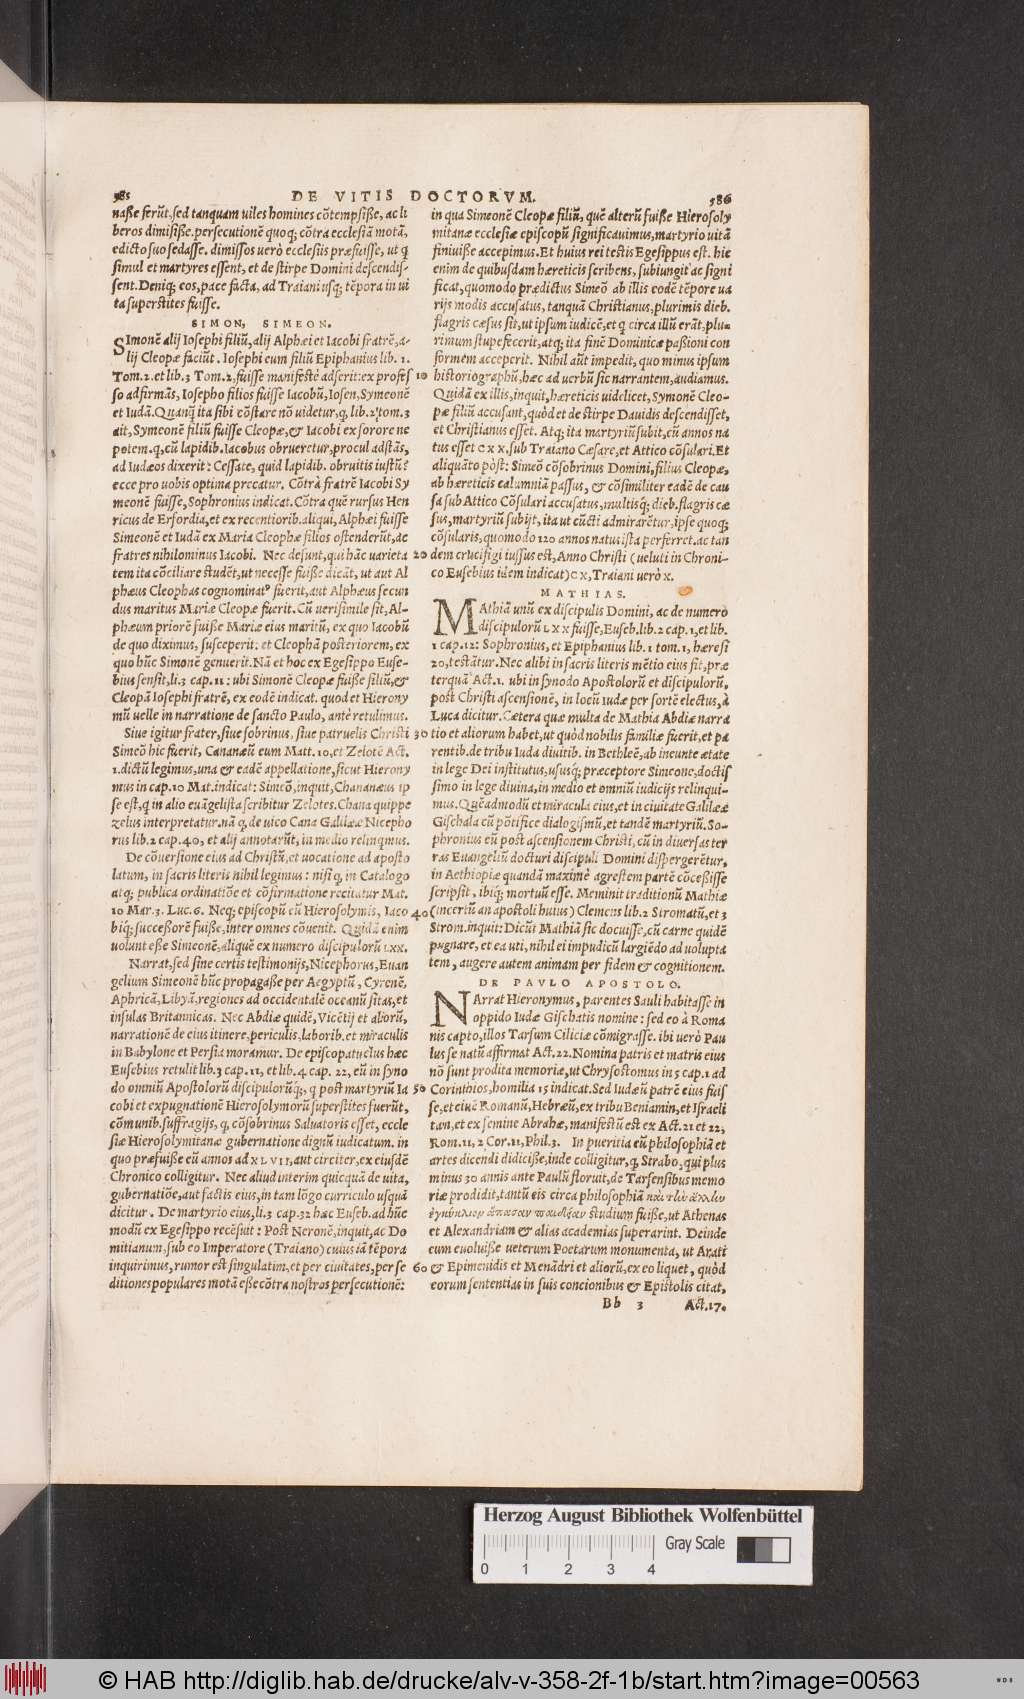 585 DE VITIS DOCTORVM. 586
naße ferũt, sed tanquam uiles homines cõtempsiße, ac li
beros dimisiße. persecutionẽ quoq; cõtra ecclesiã motã,
edicto suo sedasse. dimissos uerò ecclesiis præfuisse, ut q
simul et martyres essent, et de stirpe Domini descendis-
sent. Deniq; eos, pace facta, ad Traiani usq; tẽpora in ui
ta superstites fuisse.
SIMON, SIMEON.
SImonẽ alij Iosephi filiũ, alij Alphæi et Iacobi fratrẽ, a-
lij Cleopæ faciũt. Iosephi eum filiũ Epiphanius lib. 1.
Tom. 2. et lib. 3 Tom. 2, fuisse manifestè adserit: ex profes
so adfirmãs, Iosepho filios fuisse Iacobũ, Iosen, Symeonẽ
et Iudã. Quanq̃ ita sibi cõstare nõ uidetur, q, lib. 2 tom. 3
ait, Symeonẽ filiũ fuisse Cleopæ, & Iacobi ex sorore ne
potem. q, cũ lapidib. Iacobus obrueretur, procul adstãs,
ad Iudæos dixerit: Cessate, quid lapidib. obruitis iustũ?
ecce pro uobis optima precatur. Cõtrà fratrẽ Iacobi Sy
meonẽ fuisse, Sophronius indicat. Cõtra quẽ rursus Hen
ricus de Erfordia, et ex recentiorib. aliqui, Alphæi fuisse
Simeonẽ et Iudã ex Maria Cleophæ filios ostenderũt, de
fratres nihilominus Iacobi. Nec desunt, qui hãc varieta
tem ita cõciliare studẽt, ut necesse fuiße dicãt, ut aut Al
phæus Cleophas cognominat⁹ fuerit, aut Alphæus secun
dus maritus Mariæ Cleopæ fuerit. Cũ uerisimile sit, Al-
phæum priorẽ fuiße Mariæ eius maritũ, ex quo Iacobũ
de quo diximus, susceperit: et Cleophã posteriorem, ex
quo hũc Simonẽ genuerit. Nã et hoc ex Egesippo Euse-
bius sensit, li. 3 cap. 11: ubi Simonẽ Cleopæ fuiße filiũ, &
Cleopã Iosephi fratrẽ, ex eodẽ indicat. quod et Hierony
mũ uelle in narratione de sancto Paulo, antè retulimus.
Siue igitur frater, siue sobrinus, siue patruelis Christi
Simeõ hic fuerit, Cananæũ eum Matt. 10, et Zelotẽ Act.
1. dictũ legimus, una & eadẽ appellatione, sicut Hierony
mus in cap. 10 Mat. indicat: Simeõ, inquit, Chananæus ip
se est, q in alio euãgelista scribitur Zelotes. Chana quippe
zelus interpretatur. nã q, de uico Cana Galilææ Nicepho
rus lib. 2 cap. 40, et alij annotarũt, in medio relinqmus.
De cõuersione eius ad Christũ, et uocatione ad aposto
latum, in sacris literis nihil legimus: nisi q, in Catalogo
atq; publica ordinatiõe et cõfirmatione recitatur Mat.
10 Mar. 3. Luc. 6. Neq; episcopũ eũ Hierosolymis, Iaco
biq; succeßorẽ fuiße, inter omnes cõuenit. Quidã enim
uolunt eße Simeonẽ, aliquẽ ex numero discipulorũ LXX.
Narrat, sed sine certis testimonijs, Nicephorus, Euan
gelium Simeonẽ hũc propagaße per Aegyptũ, Cyrenẽ,
Aphricã, Libyã, regiones ad occidentalẽ oceanũ sitas, et
insulas Britannicas. Nec Abdiæ quidẽ, Vicẽtij et aliorũ,
narrationẽ de eius itinere, periculis, laborib. et miraculis
in Babylone et Persia moramur. De episcopatu eius hæc
Eusebius retulit lib. 3 cap. 11, et lib. 4 cap. 22, eũ in syno
do omniũ Apostolorũ discipulorũq;, q post martyriũ Ia
cobi et expugnationẽ Hierosolymorũ superstites fuerũt,
cõmunib. suffragijs, q, cõsobrinus Saluatoris esset, eccle
siæ Hierosolymitanæ gubernatione dignũ iudicatum. in
quo præfuiße eũ annos ad XLVII, aut circiter, ex eiusdẽ
Chronico colligitur. Nec aliud interim quicquã de uita,
gubernatiõe, aut factis eius, in tam lõgo curriculo usquã
dicitur. De martyrio eius, li. 3 cap. 32 hæc Euseb. ad hũc
modũ ex Egesippo recẽsuit: Post Neronẽ, inquit, ac Do
mitianum, sub eo Imperatore (Traiano) cuius iã tẽpora
inquirimus, rumor est singulatim, et per ciuitates, per se
ditiones populares motã eße cõtra nostros persecutionẽ:
in qua Simeonẽ Cleopæ filiũ, quẽ alterũ fuiße Hierosoly
mitanæ ecclesiæ episcopũ significauimus, martyrio uitã
finiuiße accepimus. Et huius rei testis Egesippus est. hic
enim de quibusdam hæreticis scribens, subiungit ac signi
ficat, quomodo prædictus Simeõ ab illis eodẽ tẽpore ua
rijs modis accusatus, tanquã Christianus, plurimis dieb.
flagris cæsus sit, ut ipsum iudicẽ, et q circa illũ erãt, plu-
rimum stupefecerit, atq; ita finẽ Dominicæ paßioni con
formem acceperit. Nihil aũt impedit, quo minus ipsum
10 historiographũ, hæc ad uerbũ sic narrantem, audiamus.
Quidã ex illis, inquit, hæreticis uidelicet, Symonẽ Cleo-
pæ filiũ accusant, quòd et de stirpe Dauidis descendisset,
et Christianus esset. Atq; ita martyriũ subit, cũ annos na
tus esset CXX, sub Traiano Cæsare, et Attico cõsulari. Et
aliquãto pòst: Simeõ cõsobrinus Domini, filius Cleopæ,
ab hæreticis calumniã passus, & cõsimiliter eadẽ de cau
sa sub Attico Cõsulari accusatus, multisq; dieb. flagris cæ
sus, martyriũ subijt, ita ut cũcti admirarẽtur, ipse quoq;
cõsularis, quomodo 120 annos natus ista perferret. ac tan
20 dem crucifigi iussus est, Anno Christi (ueluti in Chroni-
co Eusebius idem indicat) CX, Traiani uerò X.
MATHIAS.
MAthiã unũ ex discipulis Domini, ac de numero
discipulorũ LXX fuisse, Euseb. lib. 2 cap. 1, et lib.
1 cap. 12: Sophronius, et Epiphanius lib. 1 tom. 1, hæresi
20, testãtur. Nec alibi in sacris literis mẽtio eius fit, præ
terquã Act. 1. ubi in synodo Apostolorũ et discipulorũ,
post Christi ascensionẽ, in locũ Iudæ per sortẽ electus, à
Luca dicitur. Cætera quæ multa de Mathia Abdiæ narra
30 tio et aliorum habet, ut quòd nobilis familiæ fuerit, et pa
rentib. de tribu Iuda diuitib. in Bethleẽ, ab ineunte ætate
in lege Dei institutus, ususq; præceptore Simeone, doctis
simo in lege diuina, in medio et omniũ iudicijs relinqui-
mus. Quẽadmodũ et miracula eius, et in ciuitate Galilææ
Gischala cũ põtifice dialogismũ, et tandẽ martyriũ. So-
phronius eũ post ascensionem Christi, cũ in diuersas ter
ras Euangeliũ docturi discipuli Domini dispergerẽtur,
in Aethiopiæ quandã maximè agrestem partẽ cõceßisse
scripsit, ibiq; mortuũ esse. Meminit traditionũ Mathiæ
40 (incertũ an apostoli huius) Clemens lib. 2 Stromatũ, et 3
Strom. inquit: Dicũt Mathiã sic docuisse, cũ carne quidẽ
pugnare, et ea uti, nihil ei impudicũ largiẽdo ad uolupta
tem, augere autem animam per fidem & cognitionem.
DE PAVLO APOSTOLO.
NArrat Hieronymus, parentes Sauli habitasse in
oppido Iudæ Gischatis nomine: sed eo à Roma
nis capto, illos Tarsum Ciliciæ cõmigrasse. ibi uerò Pau
lus se natũ affirmat Act. 22. Nomina patris et matris eius
nõ sunt prodita memoriæ, ut Chrysostomus in 5 cap. 1 ad
50 Corinthios, homilia 15 indicat. Sed Iudæũ patrẽ eius fuis
se, et ciuẽ Romanũ, Hebræũ, ex tribu Beniamin, et Israeli
tan, et ex semine Abrahæ, manifestũ est ex Act. 21 et 22,
Rom. 11, 2 Cor. 11, Phil. 3. In pueritia eũ philosophiã et
artes dicendi didiciße, inde colligitur, q, Strabo, qui plus
minus 30 annis ante Paulũ floruit, de Tarsensibus memo
riæ prodidit, tantũ eis circa philosophiã καὶ τὴν ἄλλην
ἐγκύκλιον ἅπασαν παιδείαν studium fuiße, ut Athenas
et Alexandriam & alias academias superarint. Deinde
eum euoluiße ueterum Poetarum monumenta, ut Arati
60 & Epimenidis et Menãdri et aliorũ, ex eo liquet, quòd
eorum sententias in suis concionibus & Epistolis citat,
Bb 3 Act. 17.
Herzog August Bibliothek Wolfenbüttel
Gray Scale
0 1 2 3 4
© HAB http://diglib.hab.de/drucke/alv-v-358-2f-1b/start.htm?image=00563